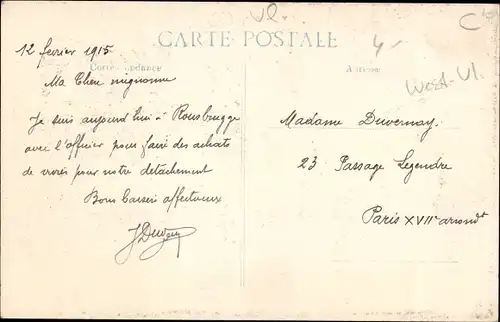 Vl.
C
CARTE POSTALE
4-
12 février 1915
Correspondance
Adresse
West-Vl.
Ma Chère mignonne
Je suis aujourd'hui à Rousbrugge
avec l'officier pour faire des achats
de vivres pour notre détachement
Bons baisers affectueux
Madame Duvernay.
23 Passage Legendre
Paris XVIIe arrondt